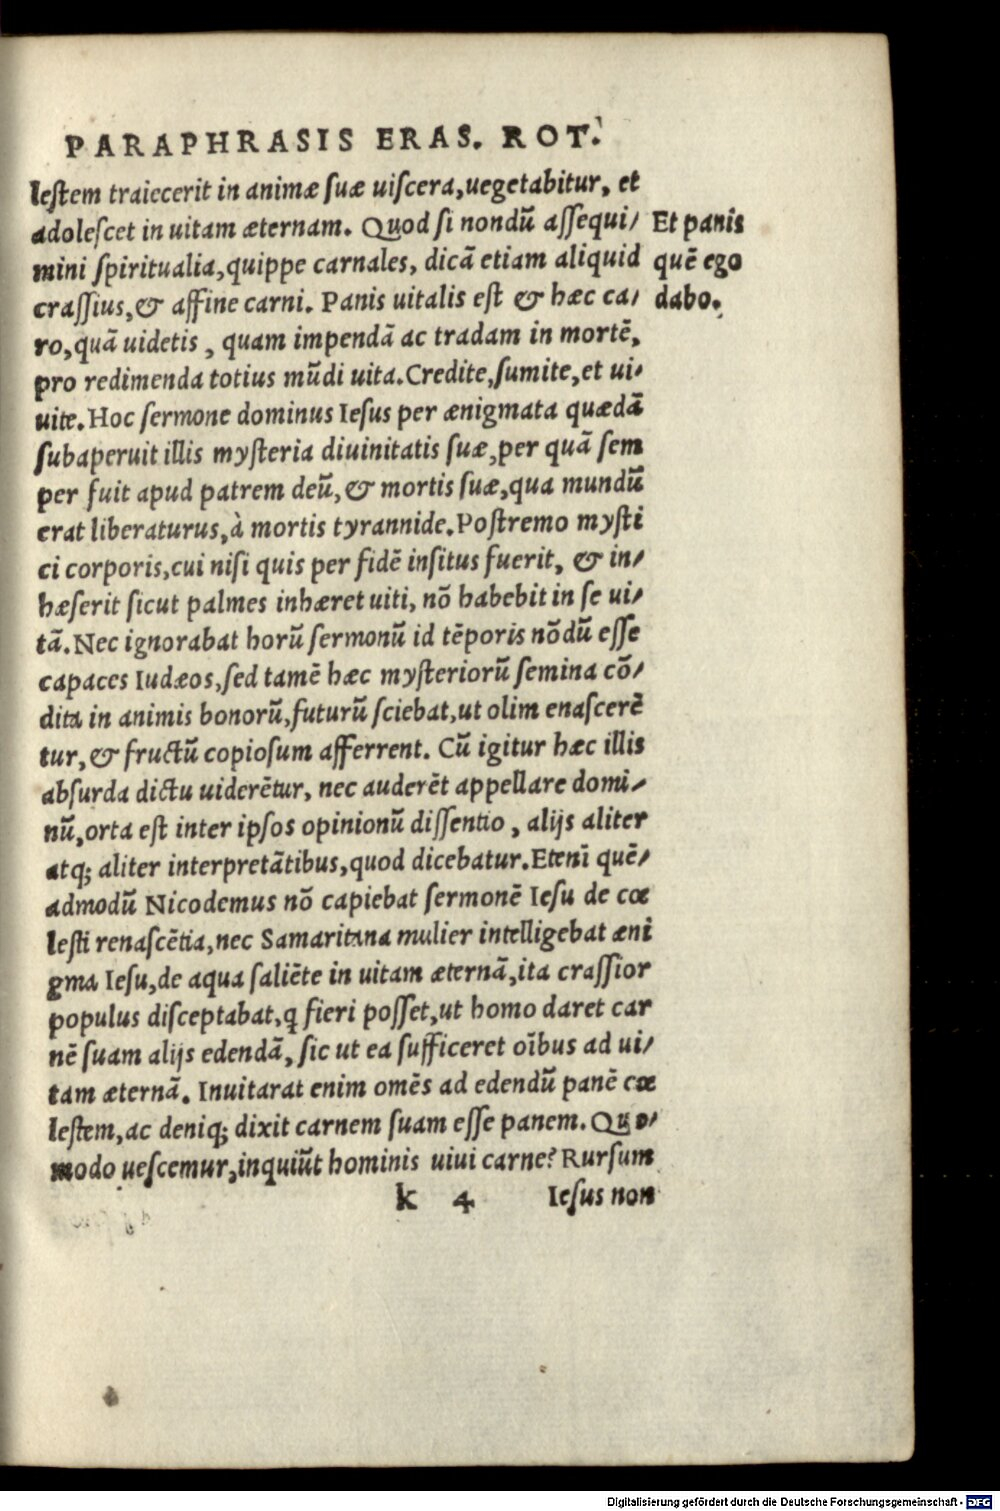 PARAPHRASIS ERAS. ROT.
leſtem traiecerit in animæ ſuæ uiſcera, uegetabitur, et
adoleſcet in uitam æternam. Quod ſi nondũ aſſequi/
mini ſpiritualia, quippe carnales, dicã etiam aliquid
craſſius, & affine carni. Panis uitalis eſt & hæc ca/
ro, quã uidetis, quam impendã ac tradam in mortẽ,
pro redimenda totius mũdi uita. Credite, ſumite, et ui/
uite. Hoc ſermone dominus Ieſus per ænigmata quædã
ſubaperuit illis myſteria diuinitatis ſuæ, per quã ſem
per fuit apud patrem deũ, & mortis ſuæ, qua mundũ
erat liberaturus, à mortis tyrannide. Poſtremo myſti
ci corporis, cui niſi quis per fidẽ inſitus fuerit, & in/
hæſerit ſicut palmes inhæret uiti, nõ habebit in ſe ui/
tã. Nec ignorabat horũ ſermonũ id tẽporis nõdũ eſſe
capaces Iudæos, ſed tamẽ hæc myſteriorũ ſemina cõ/
dita in animis bonorũ, futurũ ſciebat, ut olim enaſcerẽ
tur, & fructũ copioſum afferrent. Cũ igitur hæc illis
abſurda dictu uiderẽtur, nec auderẽt appellare domi/
nũ, orta eſt inter ipſos opinionũ diſſentio, alijs aliter
atq; aliter interpretãtibus, quod dicebatur. Etenĩ quẽ/
admodũ Nicodemus nõ capiebat ſermonẽ Ieſu de cœ
leſti renaſcẽtia, nec Samaritana mulier intelligebat æni
gma Ieſu, de aqua ſaliẽte in uitam æternã, ita craſſior
populus diſceptabat, q fieri poſſet, ut homo daret car
nẽ ſuam alijs edendã, ſic ut ea ſufficeret oĩbus ad ui/
tam æternã. Inuitarat enim omẽs ad edendũ panẽ cœ
leſtem, ac deniq; dixit carnem ſuam eſſe panem. Quo/
modo ueſcemur, inquiũt hominis uiui carne? Rurſum
k 4 Ieſus non
Et panis
quẽ ego
dabo.
Digitalisierung gefördert durch die Deutsche Forschungsgemeinschaft - DFG